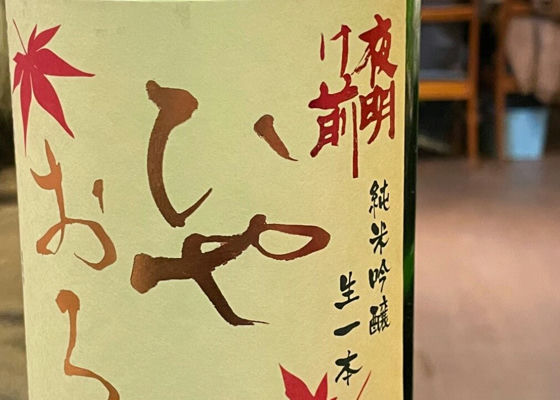 夜明
け前
純米吟醸
生一本
ひや
おろ